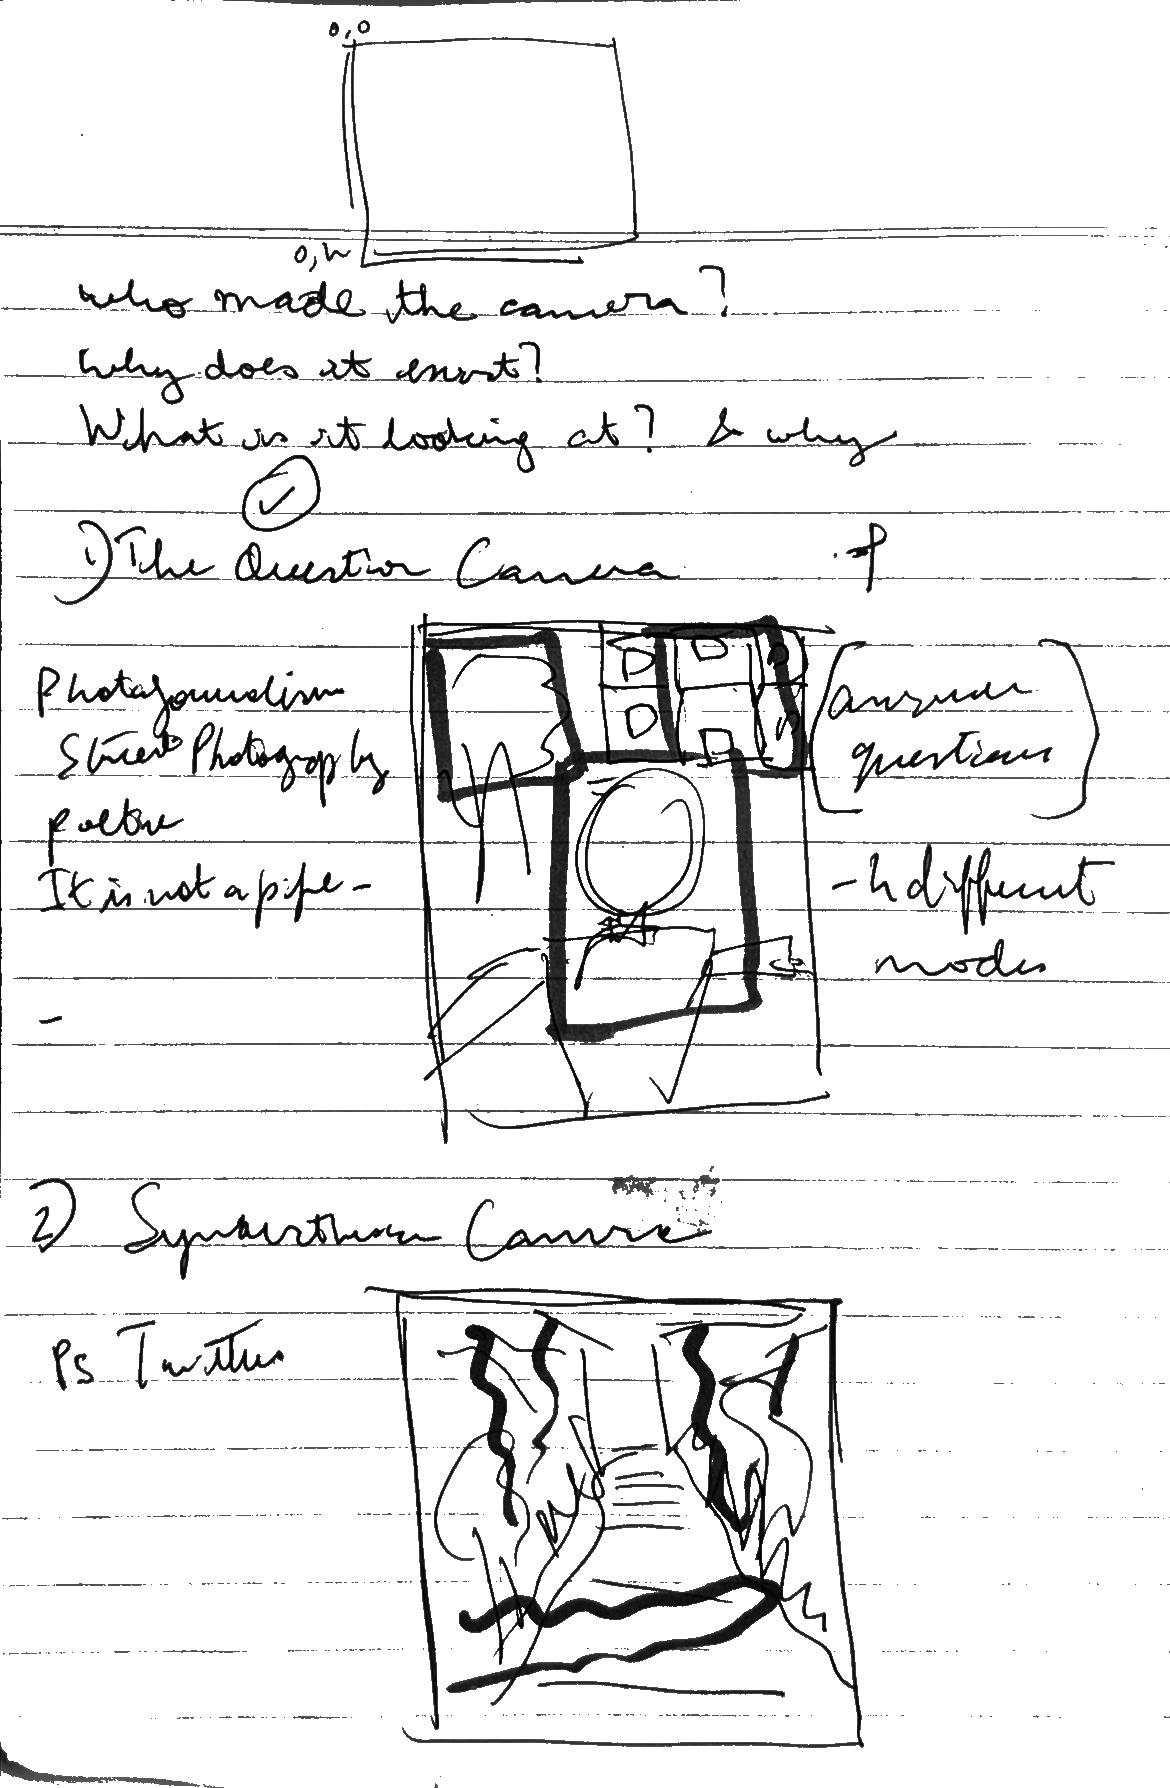 0,0
0,h
Who made the camera?
Why does it exist?
What is it looking at? & why
1) The Question Camera
Photojournalism
Street Photography
It is not a pipe -
answer
questions
- h different
modes
-
2) Synaesthesia Camera
PS Twitter